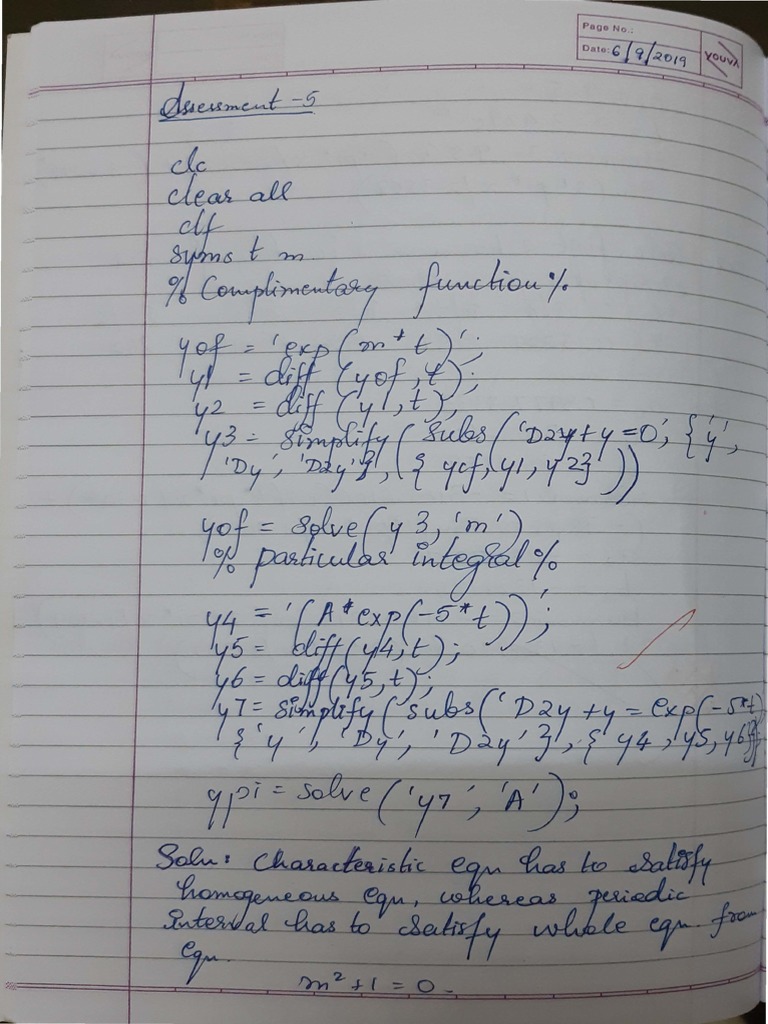 Page No.:
Date: 6/9/2019
youva
Assessment - 5
clc
clear all
clf
syms t m
% Complimentary function %
yof = 'exp(m*t)';
y1 = diff (yof, t);
y2 = diff (y1, t);
y3 = simplify (subs ('D2y+y=0', {'y',
'Dy', 'D2y'}, ({ ycf, y1, y2} ))
yof = solve (y3, 'm')
% particular integral %
y4 = '(A*exp(-5*t))';
y5 = diff(y4, t);
y6 = diff(y5, t);
y7 = simplify (subs ('D2y + y = exp(-5*t)
{ 'y', 'Dy', 'D2y' }, { y4, y5, y6}
ypi = solve ('y7', 'A');
Soln: Characteristic eqn has to satisfy
homogeneous eqn, whereas periodic
Interval has to satisfy whole eqn. from
eqn.
m²+1 = 0 -